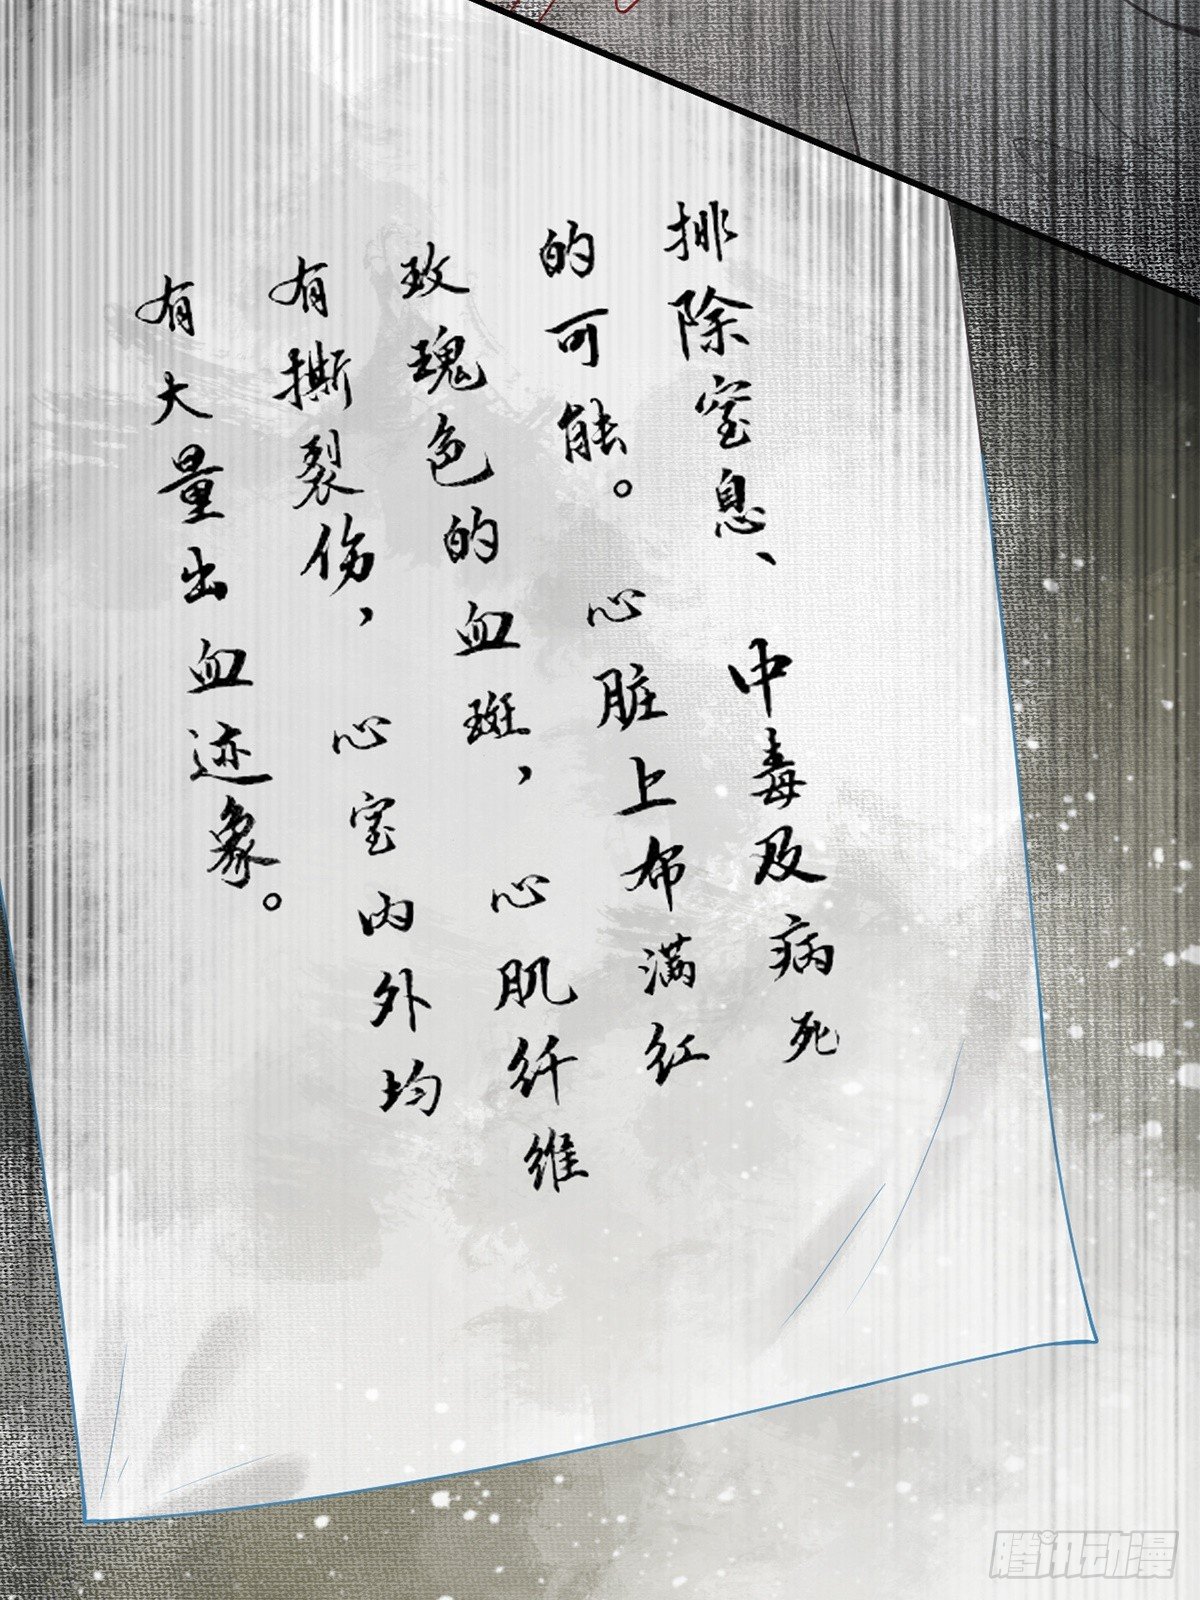 排除窒息、中毒及病死
的可能。心脏上布满红
玫瑰色的血斑，心肌纤维
有撕裂伤，心室内外均
有大量出血迹象。
腾讯动漫